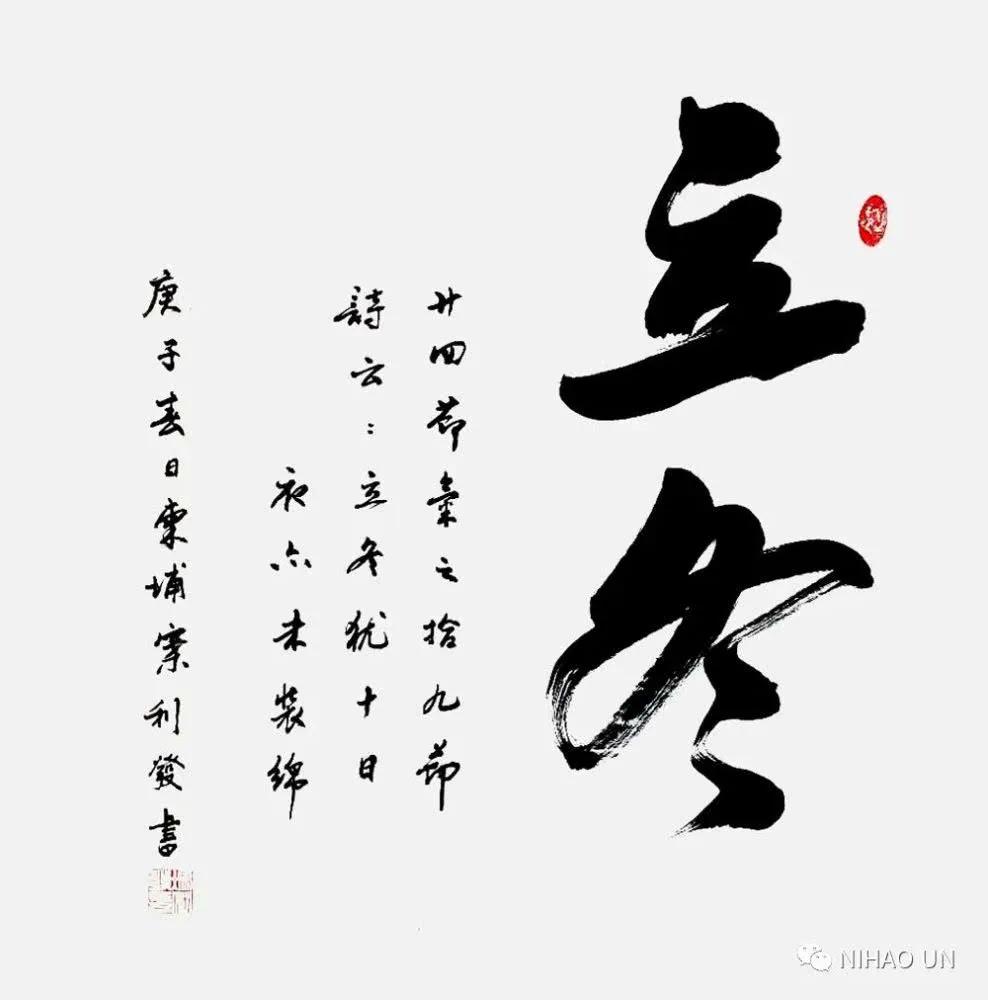 立冬
廿四節氣之拾九節
詩云：立冬犹十日
衣亦未裝綿
庚子春日柬埔寨利發書
NIHAO UN